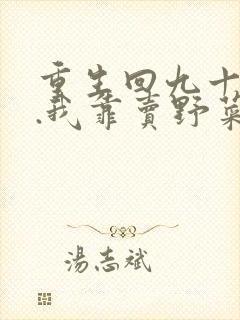 重生回九十
.我靠賣野菜
湯志斌